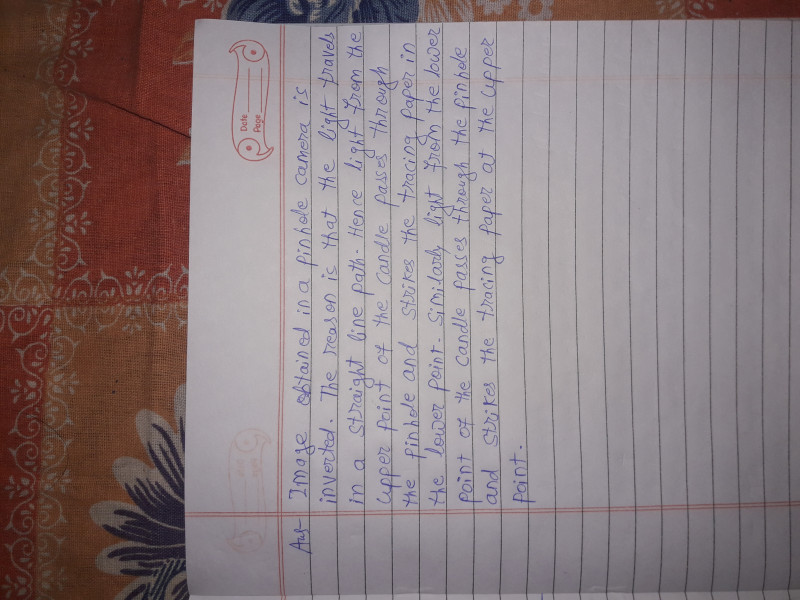 Date
Page
Ans- Image obtained in a pinhole camera is
inverted. The reason is that the light travels
in a straight line path. Hence light from the
upper point of the candle passes through
the pinhole and strikes the tracing paper in
the lower point. Similarly light from the lower
point of the candle passes through the pinhole
and strikes the tracing paper at the upper
point.